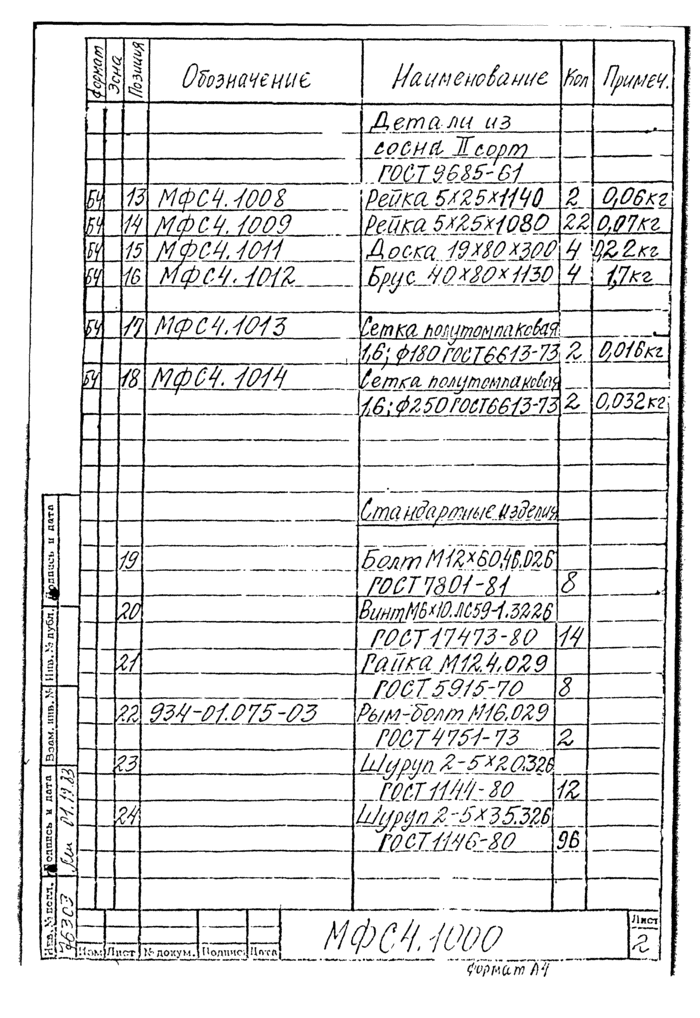 Формат Зона Позиция Обозначение Наименование Кол Примеч.
Детали из
сосна II сорт
ГОСТ 9685-61
БЧ 13 МФС4.1008 Рейка 5×25×1140 2 0,06кг
БЧ 14 МФС4.1009 Рейка 5×25×1080 22 0,07кг
БЧ 15 МФС4.1011 Доска 19×80×300 4 0,22кг
БЧ 16 МФС4.1012 Брус 40×80×1130 4 1,7кг
БЧ 17 МФС4.1013 Сетка полутомпаковая
1,6; Ф180 ГОСТ6613-73 2 0,016кг
БЧ 18 МФС4.1014 Сетка полутомпаковая
1,6; Ф250 ГОСТ6613-73 2 0,032кг
Стандартные изделия
19 Болт М12×60.46.026
ГОСТ 7801-81 8
20 Винт М6×10.ЛС59-1.3226
ГОСТ 17473-80 14
21 Гайка М12.4.029
ГОСТ 5915-70 8
22 934-01.075-03 Рым-болт М16.029
ГОСТ 4751-73 2
23 Шуруп 2-5×20.326
ГОСТ 1144-80 12
24 Шуруп 2-5×35.326
ГОСТ 1146-80 96
Подпись и дата
Инв. № дубл.
Взам. инв. №
Подпись и дата
Инв. № подл.
76303
Изм Лист № докум. Подпис. Дата
МФС4.1000
Лист
2
формат А4